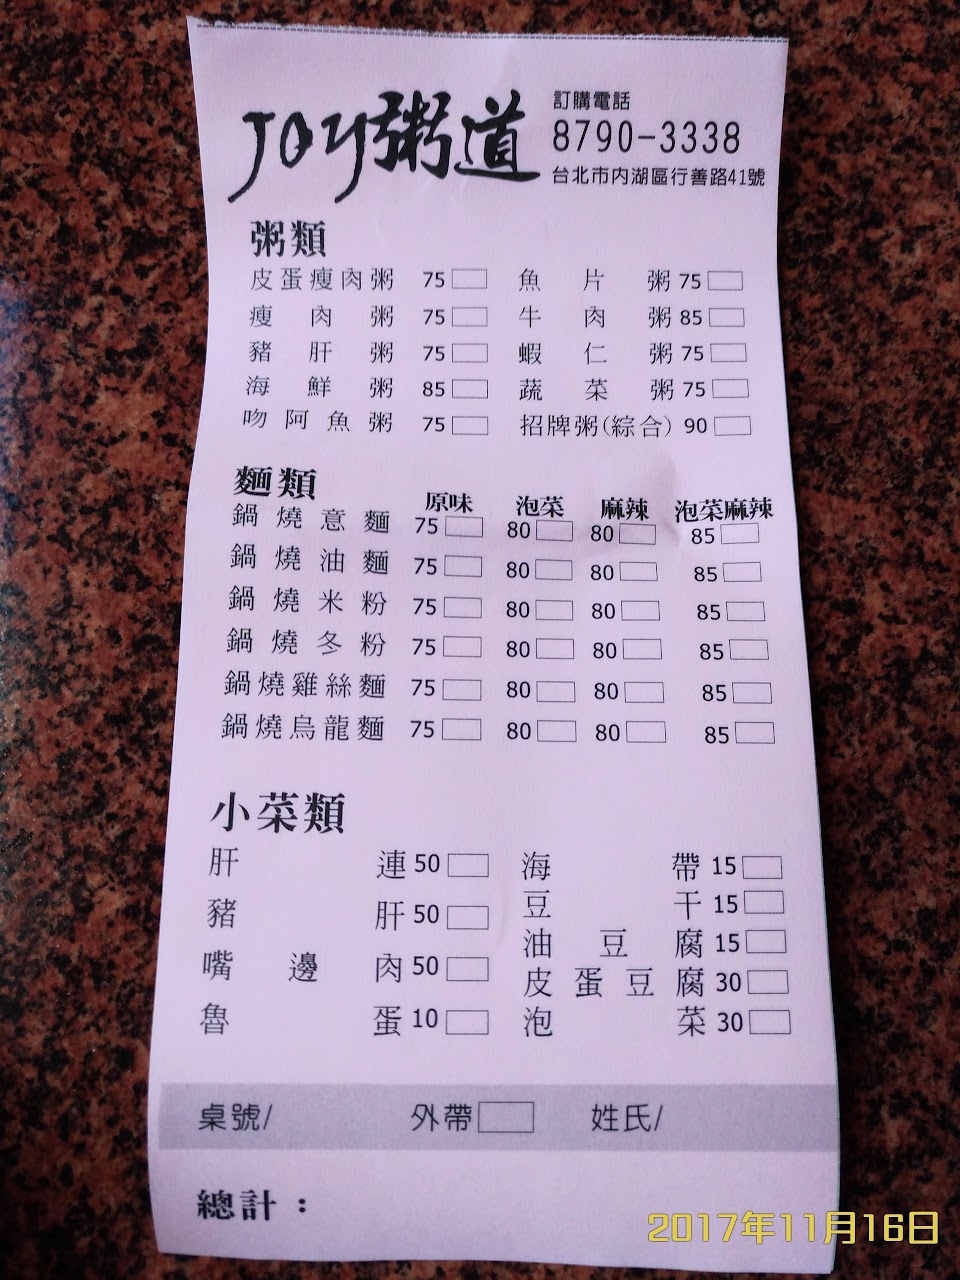 JOY粥道
訂購電話
8790-3338
台北市內湖區行善路41號
粥類
皮蛋瘦肉粥 75 魚片粥 75
瘦肉粥 75 牛肉粥 85
豬肝粥 75 蝦仁粥 75
海鮮粥 85 蔬菜粥 75
吻阿魚粥 75 招牌粥(綜合) 90
麵類 原味 泡菜 麻辣 泡菜麻辣
鍋燒意麵 75 80 80 85
鍋燒油麵 75 80 80 85
鍋燒米粉 75 80 80 85
鍋燒冬粉 75 80 80 85
鍋燒雞絲麵 75 80 80 85
鍋燒烏龍麵 75 80 80 85
小菜類
肝連 50 海帶 15
豬肝 50 豆干 15
嘴邊肉 50 油豆腐 15
魯蛋 10 皮蛋豆腐 30
泡菜 30
桌號/ 外帶 姓氏/
總計：
2017年11月16日